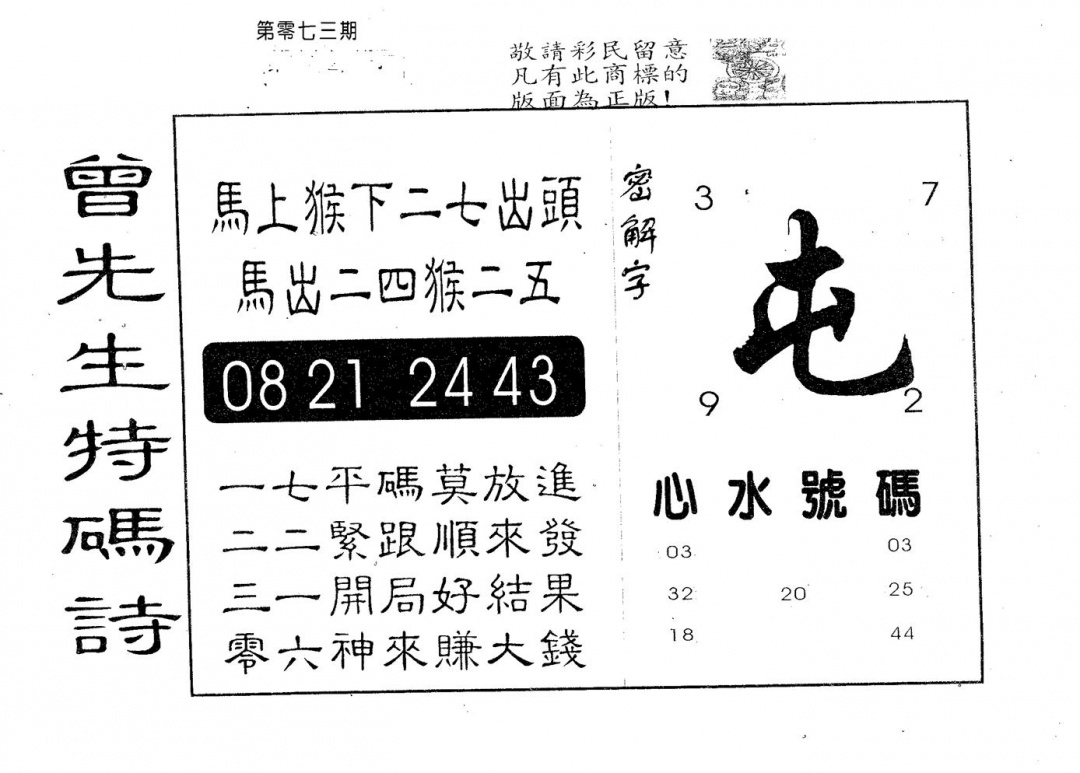 第零七三期
敬請彩民留意
凡有此商標的
版面為正版!
曾先生特碼詩
馬上猴下二七出頭
馬出二四猴二五
08 21 24 43
一七平碼莫放進
二二緊跟順來發
三一開局好結果
零六神來賺大錢
密解字
3 7
屯
9 2
心水號碼
03 03
32 20 25
18 44